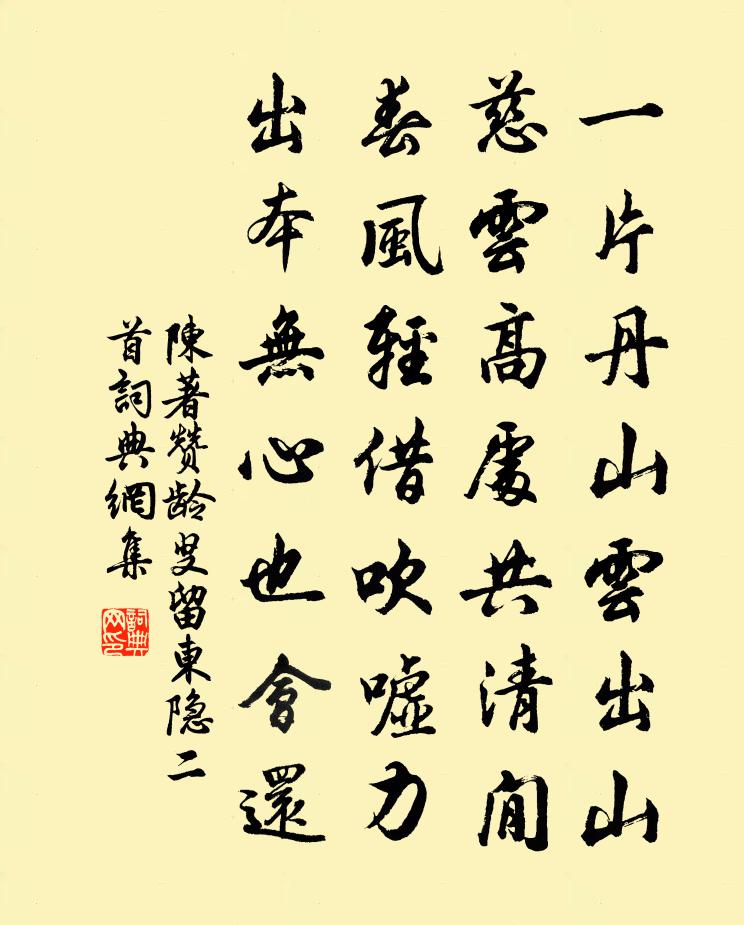 一片丹山雲出山
慈雲高處共清閒
春風輕借吹噓力
出本無心也會還
陳著赞龄叟留東隐二
首詞典網集
詞典
网印